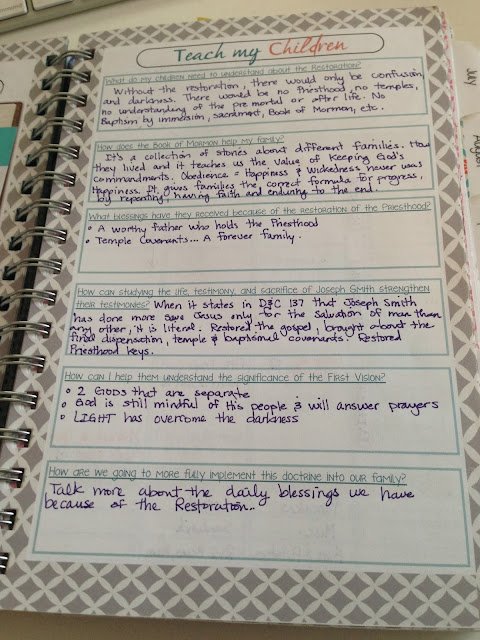 Teach my Children
What do my children need to understand about the Restoration?
Without the restoration, there would only be confusion,
and darkness. There would be no Priesthood, no temples,
no understanding of the premortal or after life. No
Baptism by immersion, sacrament, Book of Mormon, etc.
How does the Book of Mormon help my family?
It's a collection of stories about different families. How
they lived and it teaches us the value of keeping God's
commandments. Obedience = Happiness & Wickedness never was!
Happiness. It gives families the correct formula for progress,
by repenting, having faith and enduring to the end...
What blessings have they received because of the Restoration of the Priesthood?
• A worthy father who holds the Priesthood
• Temple Covenants... A forever family.
How can studying the life, testimony, and sacrifice of Joseph Smith strengthen
their testimonies? When it states in D&C 137 that Joseph Smith
has done more save Jesus only for the salvation of man than
any other, it is literal. Restored the gospel, brought about the
final dispensation, temple & baptismal covenants. Restored
Priesthood keys.
How can I help them understand the significance of the First Vision?
• 2 GODS that are separate
• God is still mindful of His people & will answer prayers
• LIGHT has overcome the darkness
How are we going to more fully implement this doctrine into our family?
Talk more about the daily blessings we have
because of the Restoration.
July
August